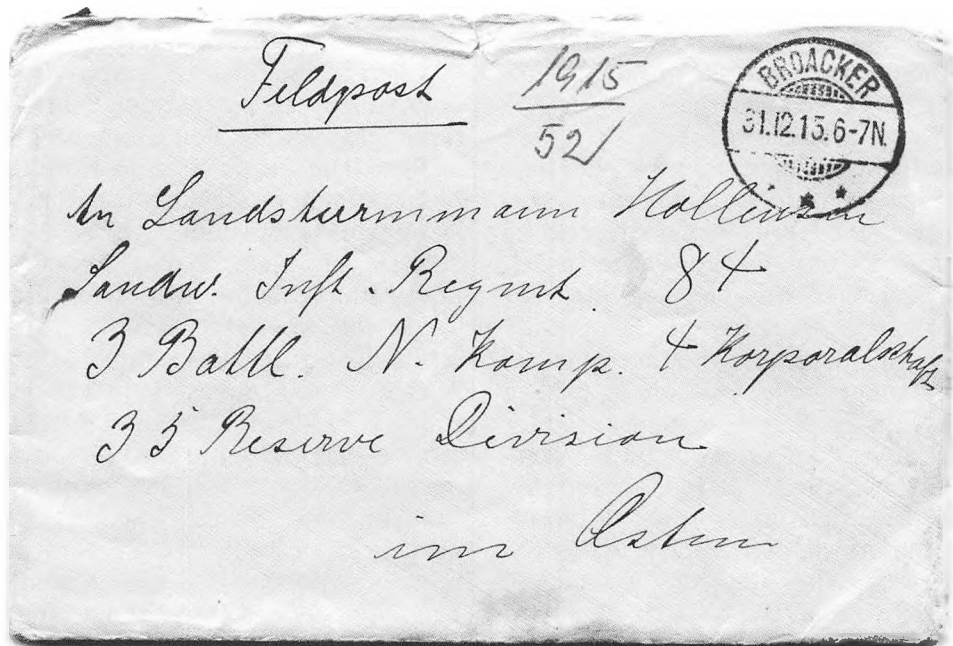 Feldpost
1915
52
BROACKER
31.12.15.6-7N.
An Landsturmmann Hollensen
Landw. Inft. Regmt. 84
3 Battl. N. Komp. 4 Korporalschaft
35 Reserve Division
im Osten